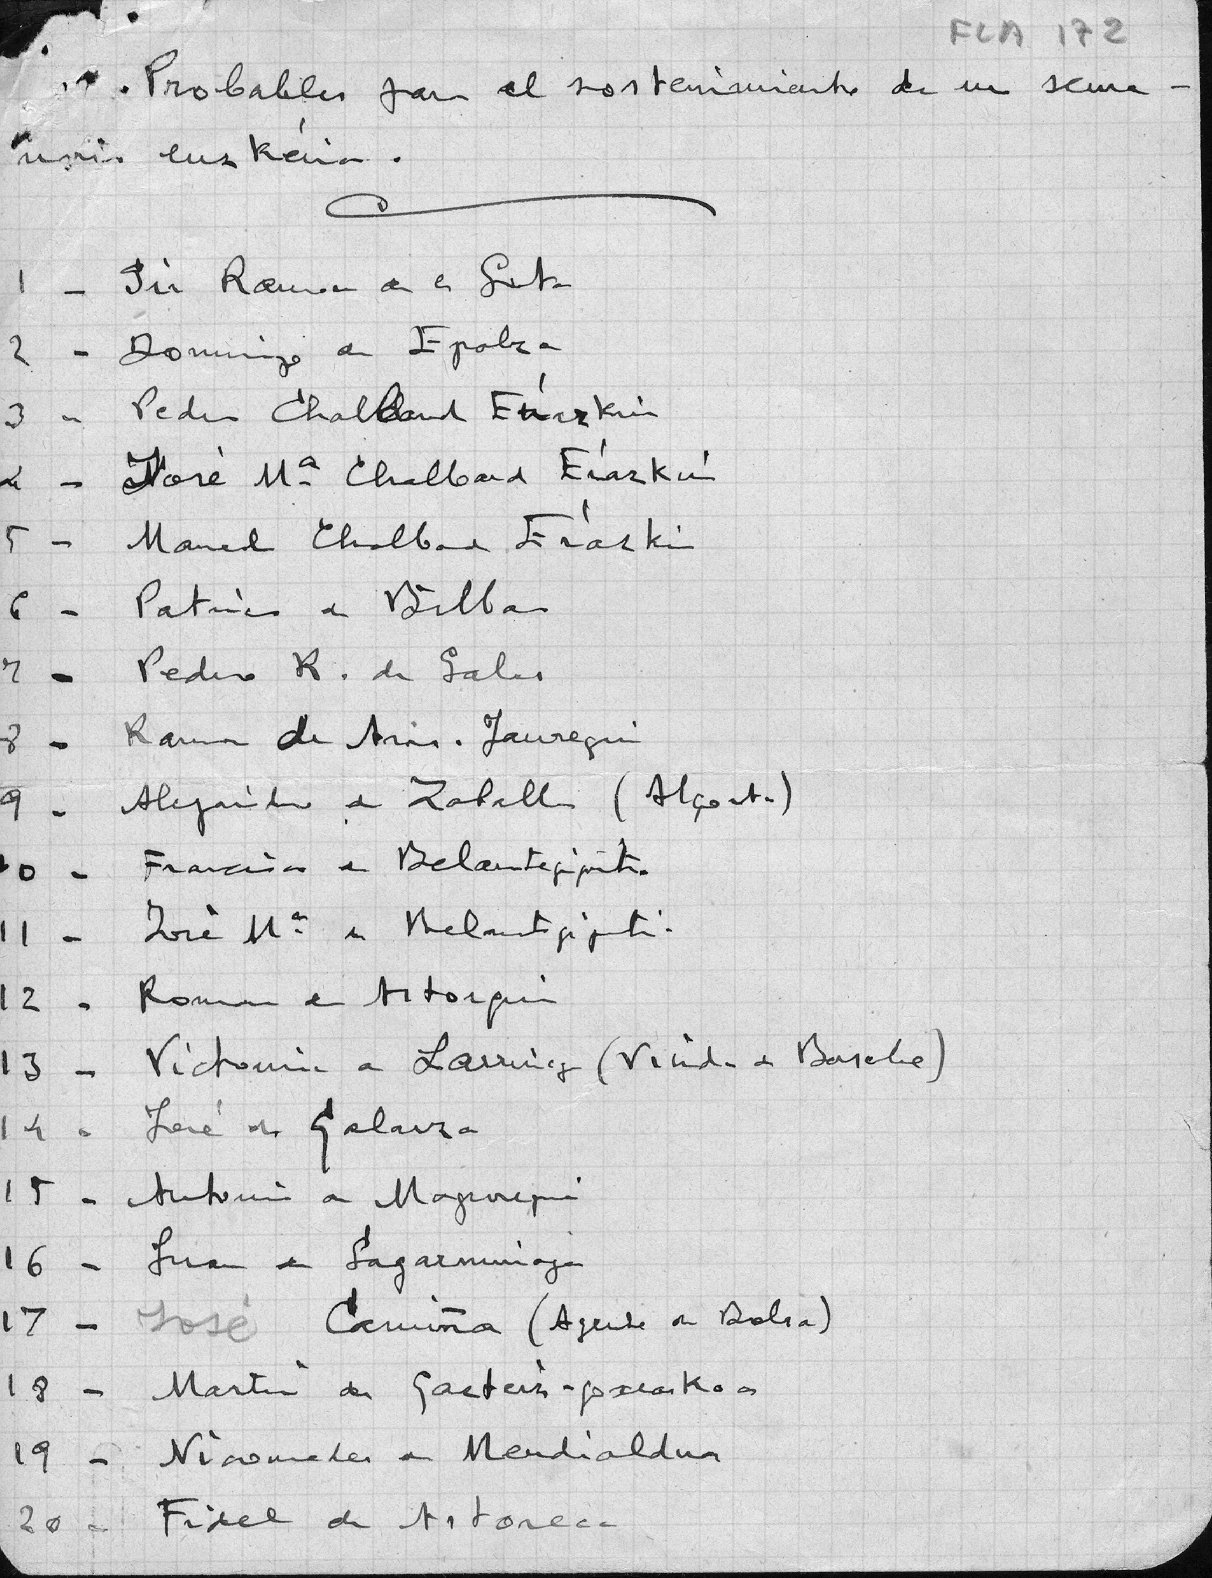 FLA 172
Probables para el sostenimiento de un sema-
nario euskérico.
1 - Sir Ramon de la Sota
2 - Domingo de Epalza
3 - Pedro Chalbaud Eŕazkin
4 - José Mª Chalbaud Eŕazkin
5 - Manuel Chalbaud Eŕazkin
6 - Patricio de Bilbao
7 - Pedro R. de Galas
8 - Ramon de Aras-Jauregui
9 - Alejandro de Zaballa (Algorta)
10 - Francisco de Belaustegigoitia
11 - José Mª de Belaustegigoitia
12 - Roman de Astorqui
13 - Victorina de Larrinaga (Viuda de Basabe)
14 - José de Galarza
15 - Antonio de Maguregui
16 - Juan de Sagarminaga
17 - José Camiña (Agente de Bolsa)
18 - Martin de Gaeteiz-goxeaskoa
19 - Nicomedes de Mendialdua
20 - Fidel de Astoreca